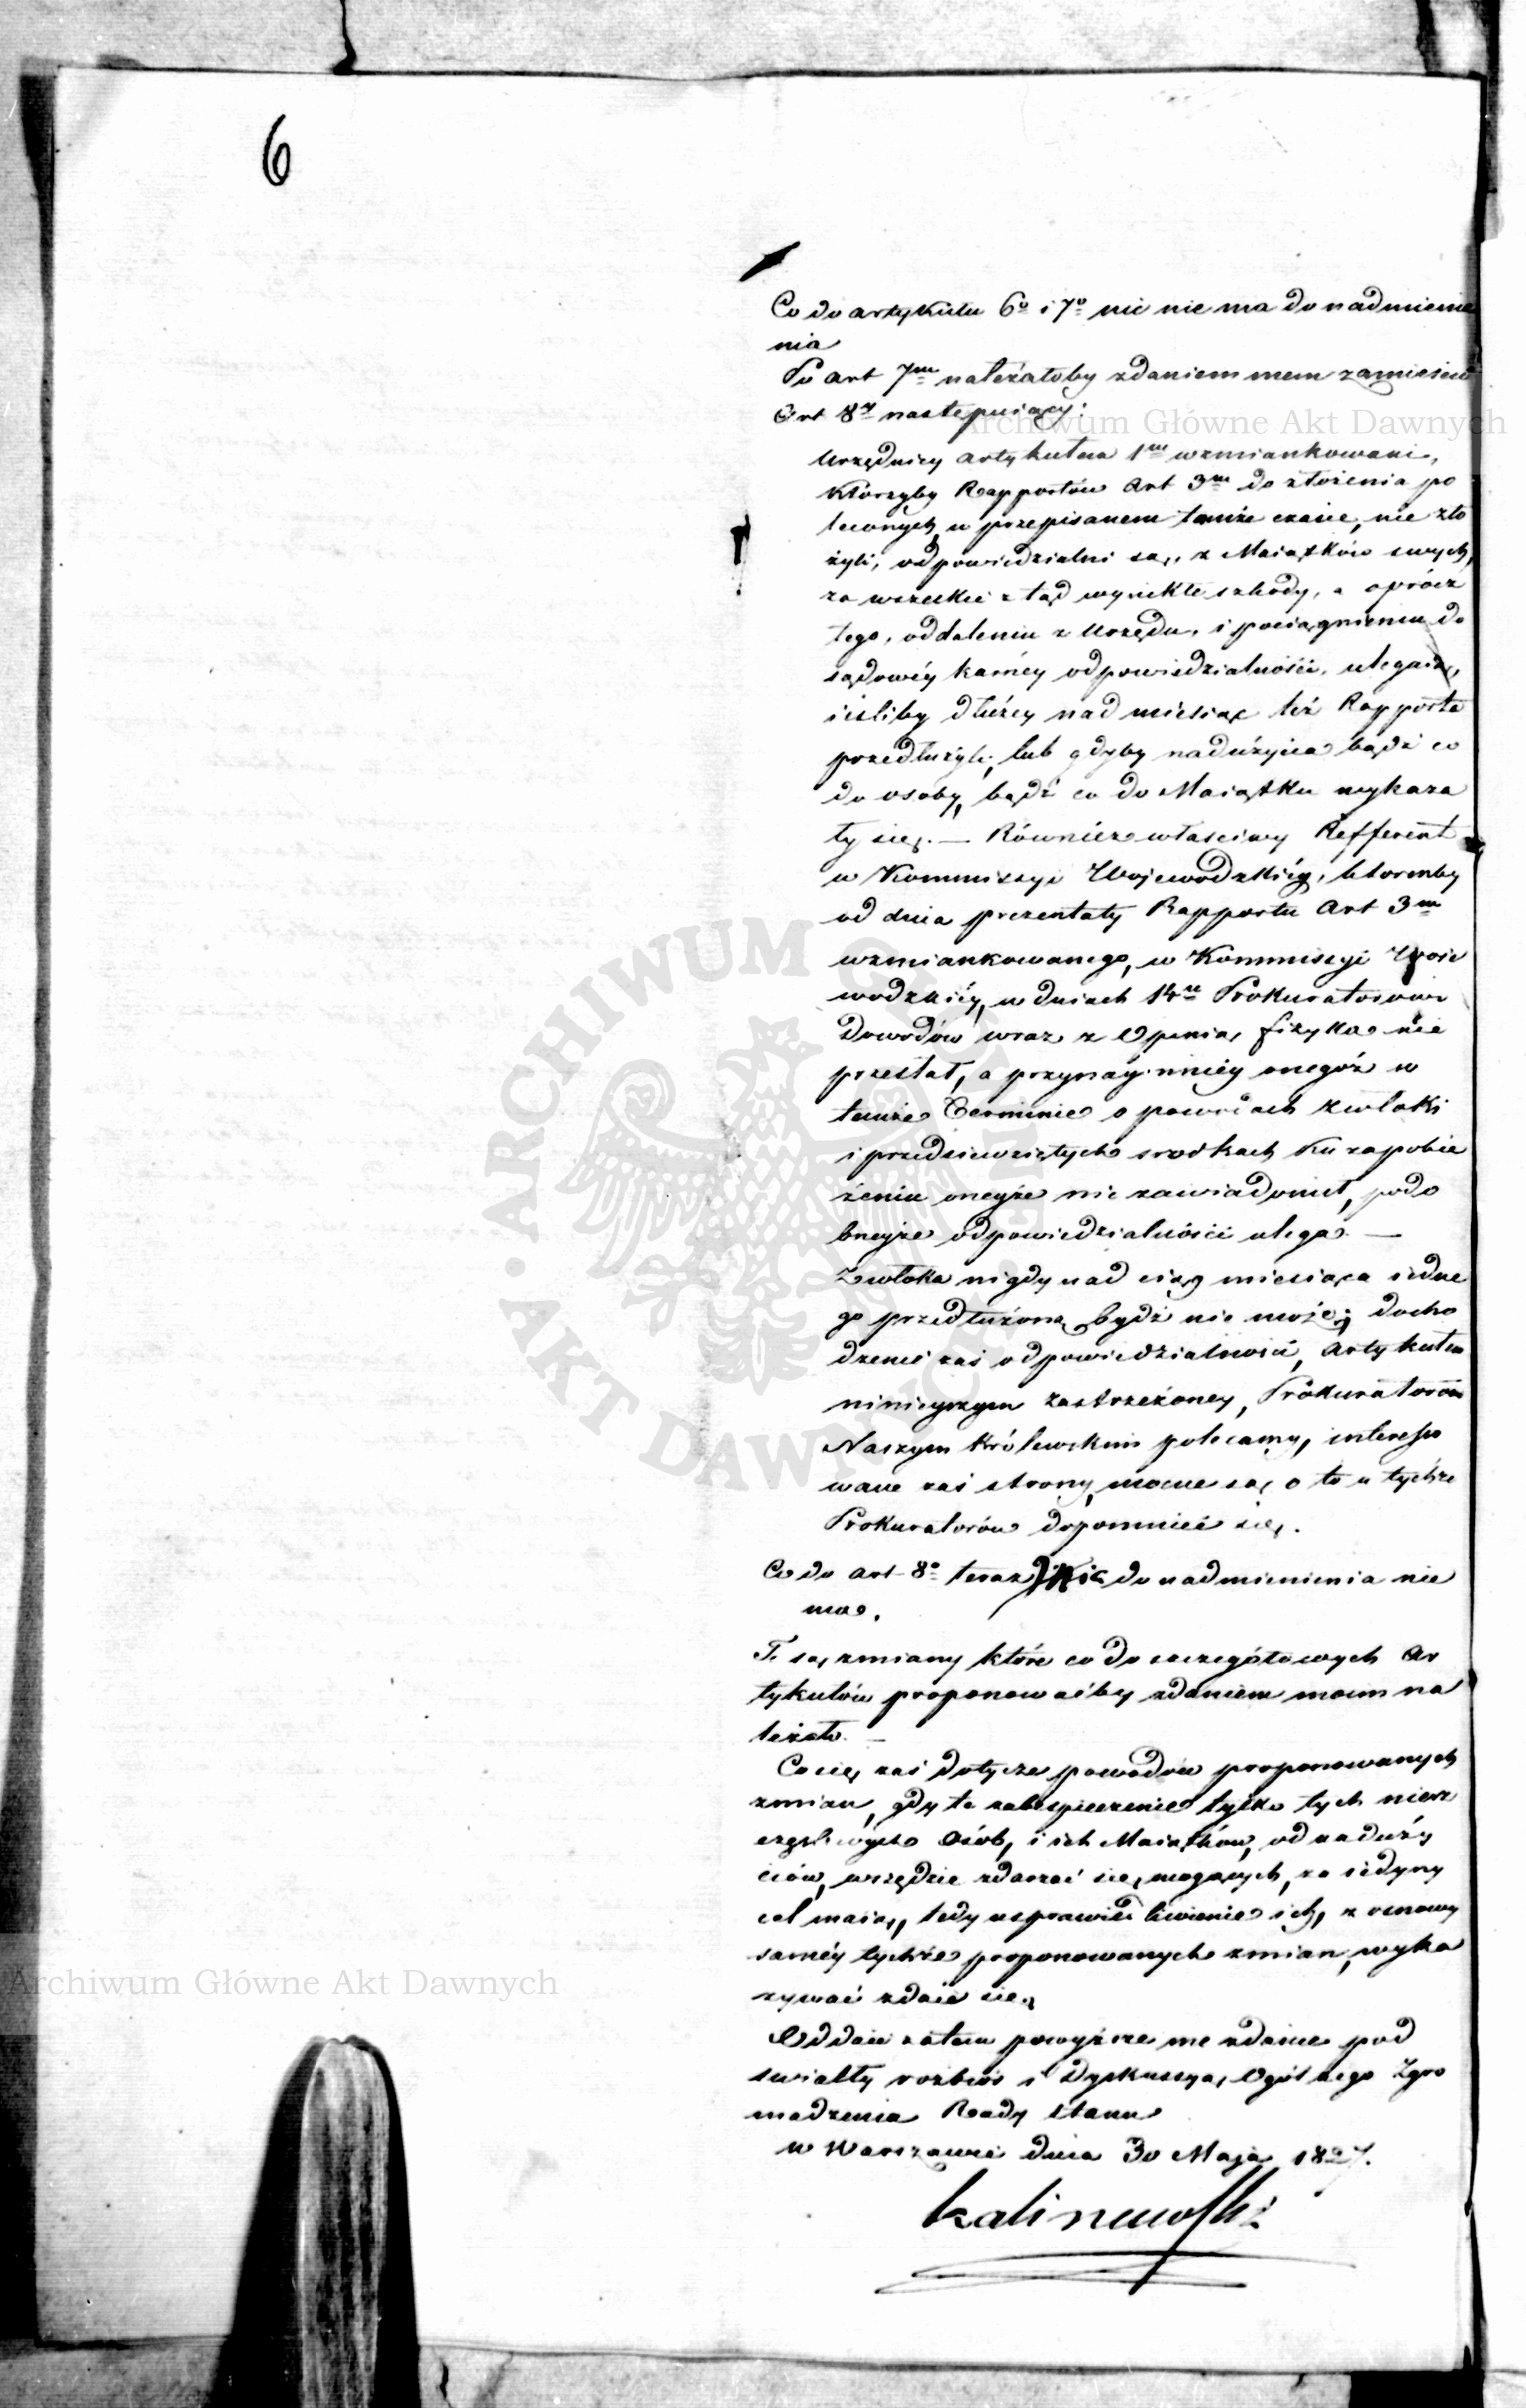 6
Co do artykułu 6º i 7º nic nie ma do nadmienie
nia
Po art 7m należałoby zdaniem mem zamieścić
Art 8y następuiący:
Urzędnicy artykułem 1m wzmiankowani,
którzyby Rapportów Art 3m do złożenia po
leconych, w przepisanem tamże czasie, nie zło
żyli, odpowiedzialni są, z Maiątków swych,
za wszelkie ztąd wynikłe szkody, a oprócz
tego, oddaleniu z Urzędu, i pociągnieniu do
sądowéy karnéy odpowiedzialności, ulegaią,
ieśliby dłużey nad miesiąc też Rapporta
przedłużyli, lub gdyby nadużycia bądź co
do osoby, bądź co do Maiątku wykaza
ły się. — Również właściwy Refferent
w Kommissyi Wojewodzkiéy, któremby
od dnia prezentaty Rapportu Art 3m
wzmiankowanego, w Kommissyi Woje
wodzkiéy, w dniach 14u Prokuratorowi
Dowodów wraz z Opinią fizyka nie
przesłał, a przynaymniéy onegóż w
temże Terminie o powodach zwłoki
i przedsiewziętych srodkach ku zapobie
żeniu oneyże nie zawiadomił, podo
bneyże odpowiedzialności ulega. —
Zwłoka nigdy nad ciąg miesiąca iedne
go przedłużoną bydź nie może; docho
dzenie zaś odpowiedzialności, Artykułem
ninieyszym zastrzeżoney, Prokuratorom
Naszym Królewskim polecamy, interesso
wane zaś strony, mocne są o to u tychże
Prokuratorów dopomnieć się.
Co do art 8º teraz nic do nadmienienia nie
ma.
Te są zmiany które co do szczegółowych Ar
tykułów proponowaćby zdaniem moim na
leżało. —
Co się zaś dotycze powodów proponowanych
zmian, gdy te zabespieczenie tylko tych niesz
częśliwych Osób, i ich Maiątków, od naduży
ciów, wszędzie zdarzać się mogących, za iedyny
cel maią, tedy usprawiedliwienie ich, z osnowy
saméy tychże proponowanych zmian, wyka
zywać zdaie się.
Oddaie zatem powyższe me zdanie pod
swiatły rozbiór i Dyskussyą Ogólnego Zgro
madzenia Rady Stanu
w Warszawie dnia 30 Maja 1827.
Kalinowski
Archiwum Główne Akt Dawnych
Archiwum Główne Akt Dawnych
ARCHIWUM GŁÓWNE • AKT DAWNYCH